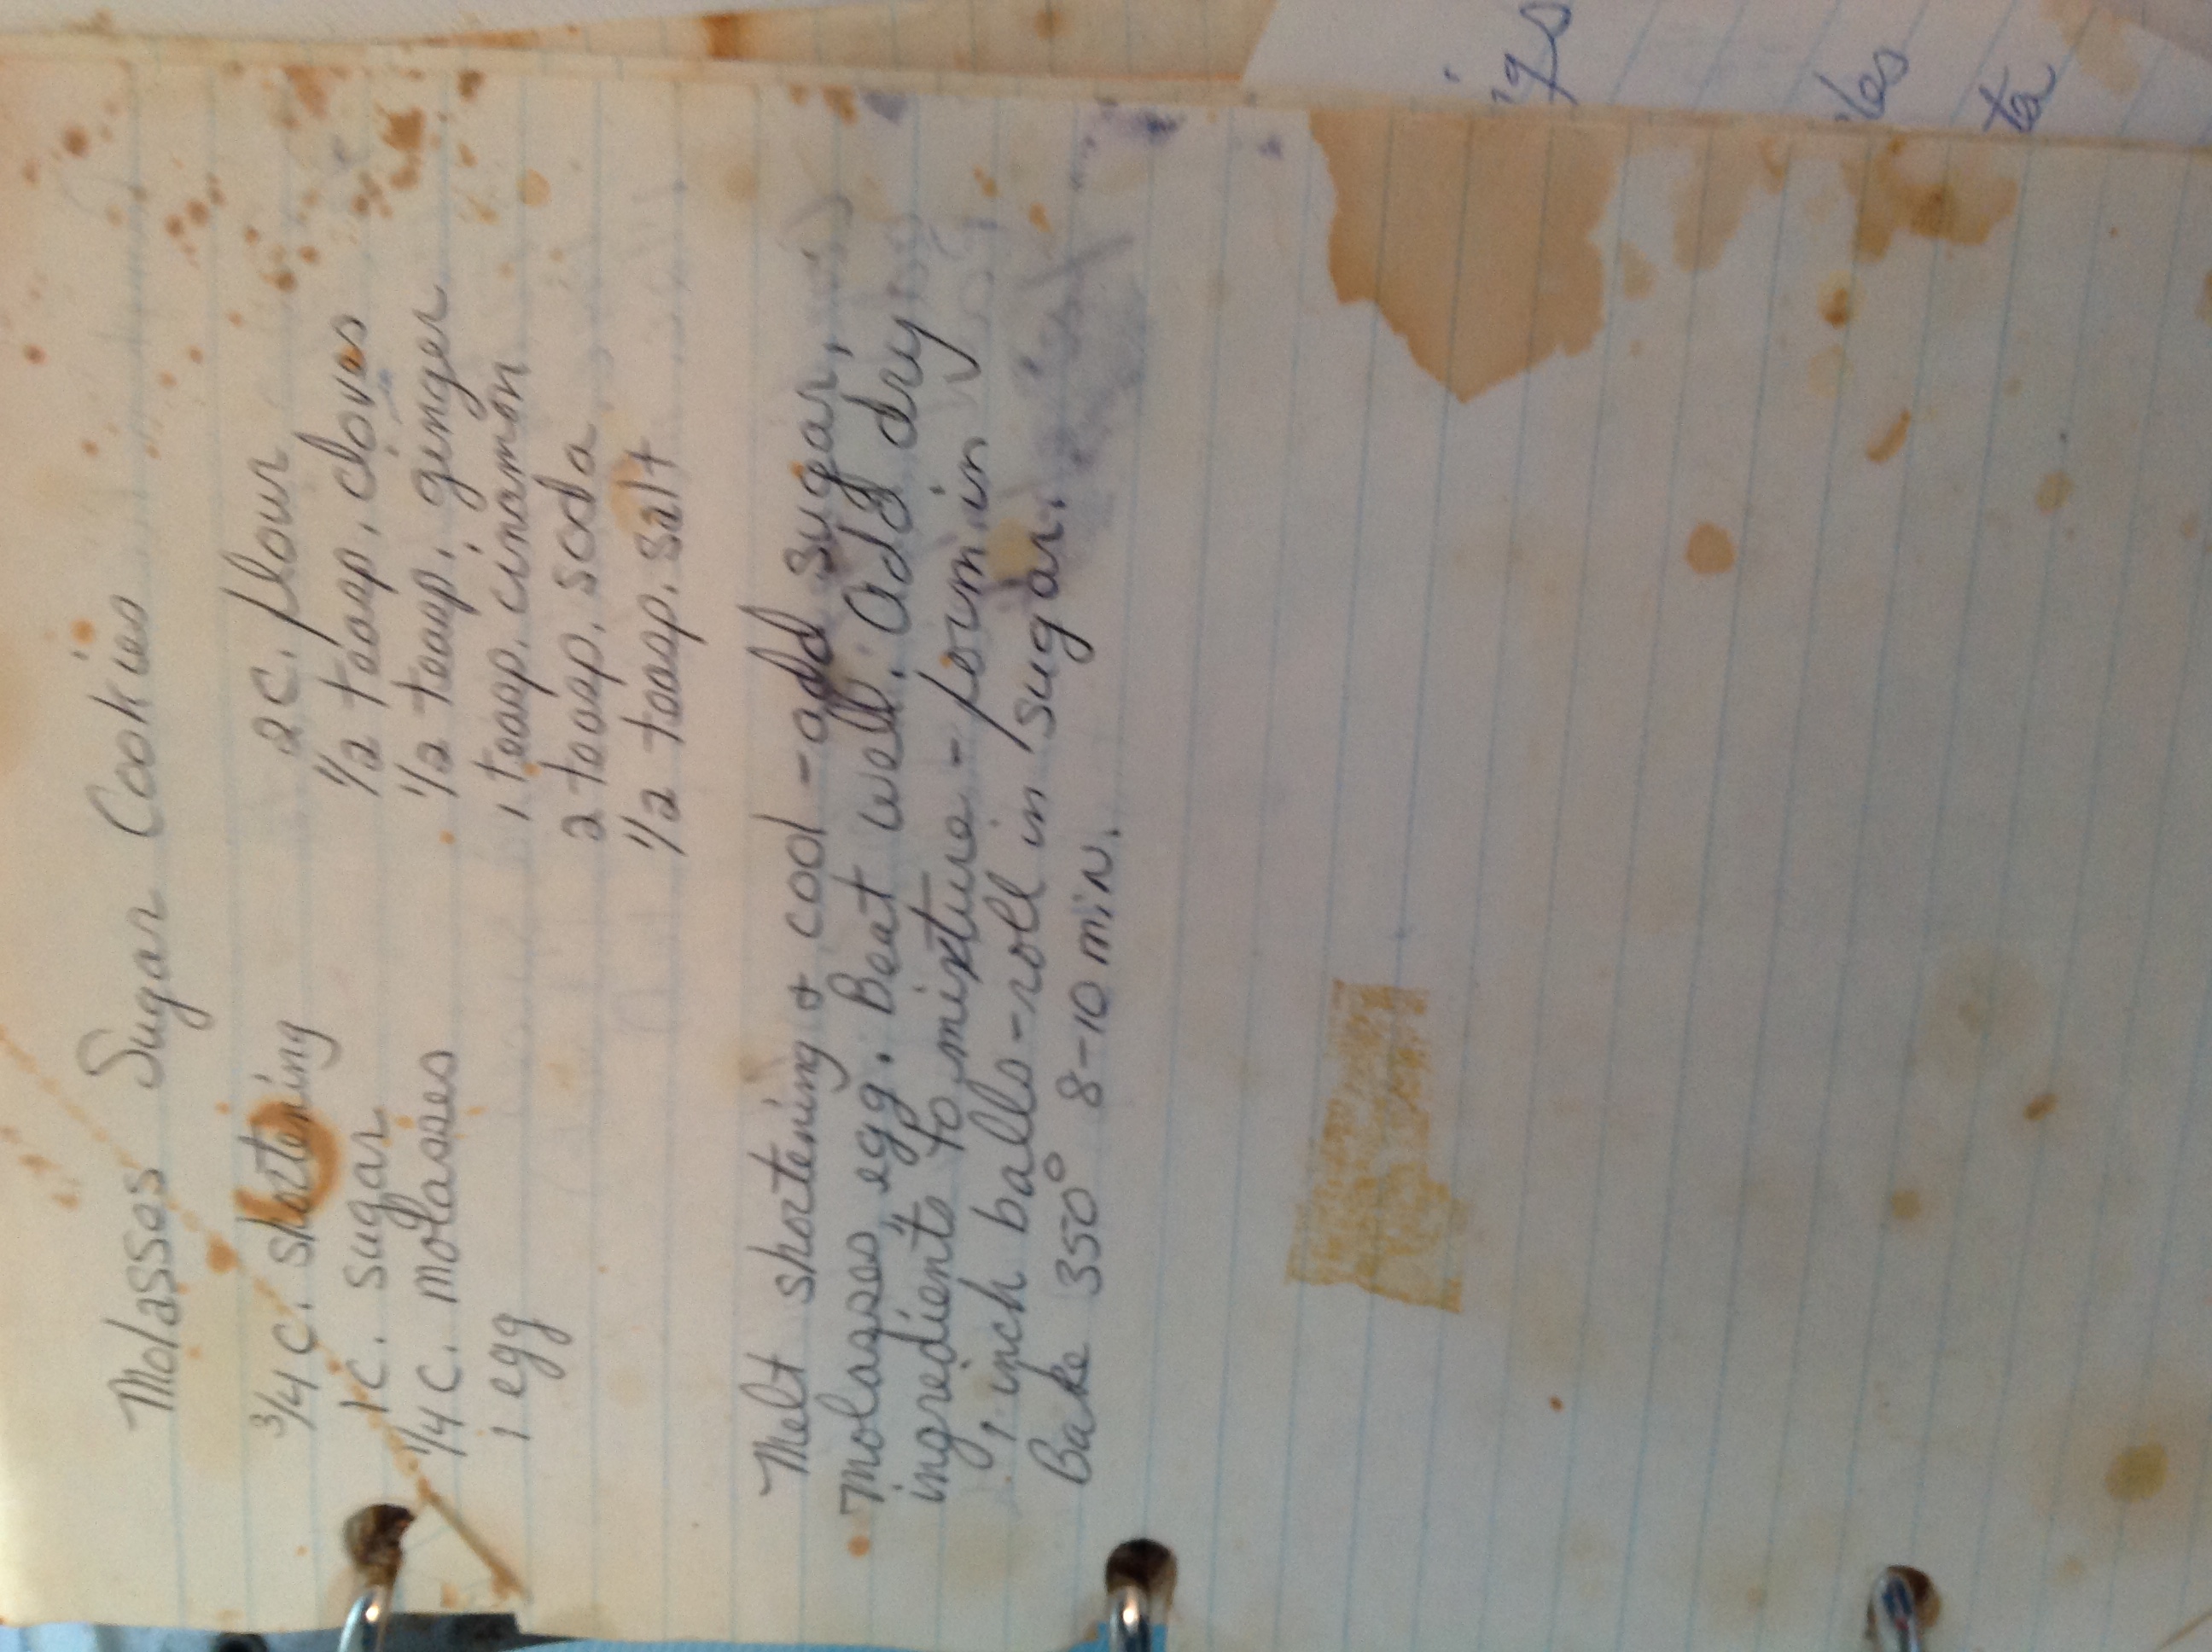 Molasses Sugar Cookies
3/4 c. shortening
1 c. sugar
1/4 c. molasses
1 egg
2 c. flour
1/2 teasp. cloves
1/2 teasp. ginger
1 teasp. cinamon
2 teasp. soda
1/2 teasp. salt
Melt shortening & cool - add sugar,
molasses egg. Beat well. Add dry
ingredients to mixture - form in
1 inch balls - roll in sugar.
Bake 350° 8-10 min.